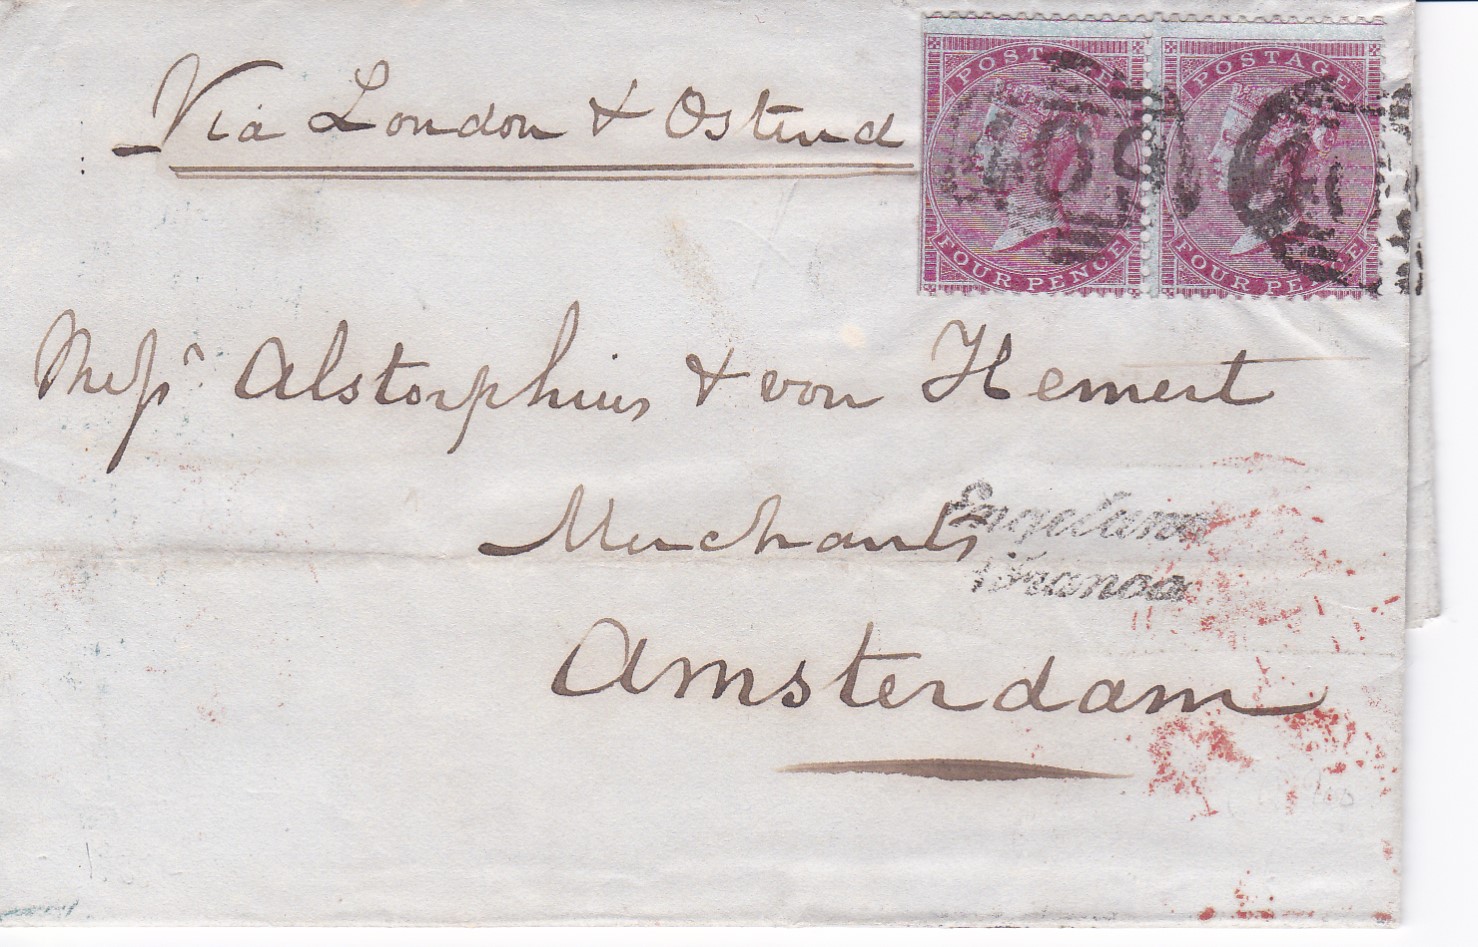 Via London & Ostend
POSTAGE POSTAGE
FOUR PENCE FOUR PENCE
Messrs Alstorphius & von Hemert
Merchants
Engeland
Franco
Amsterdam